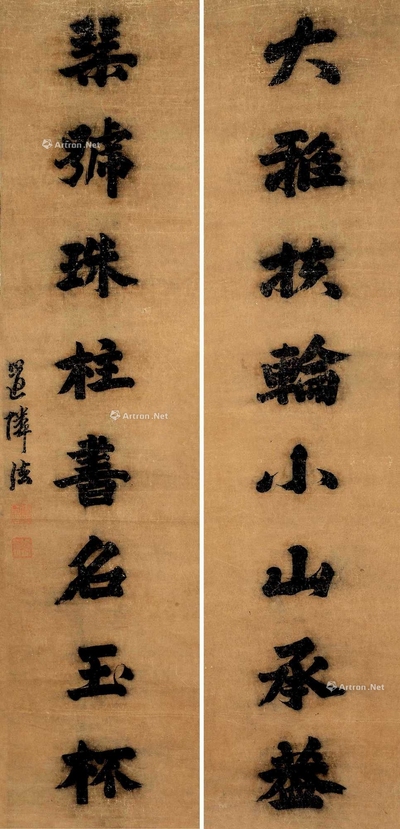 大雅扶輪小山承蓋
琴號珠柱書名玉杯
法
Artron.Net
Artron.Net
Artron.Net